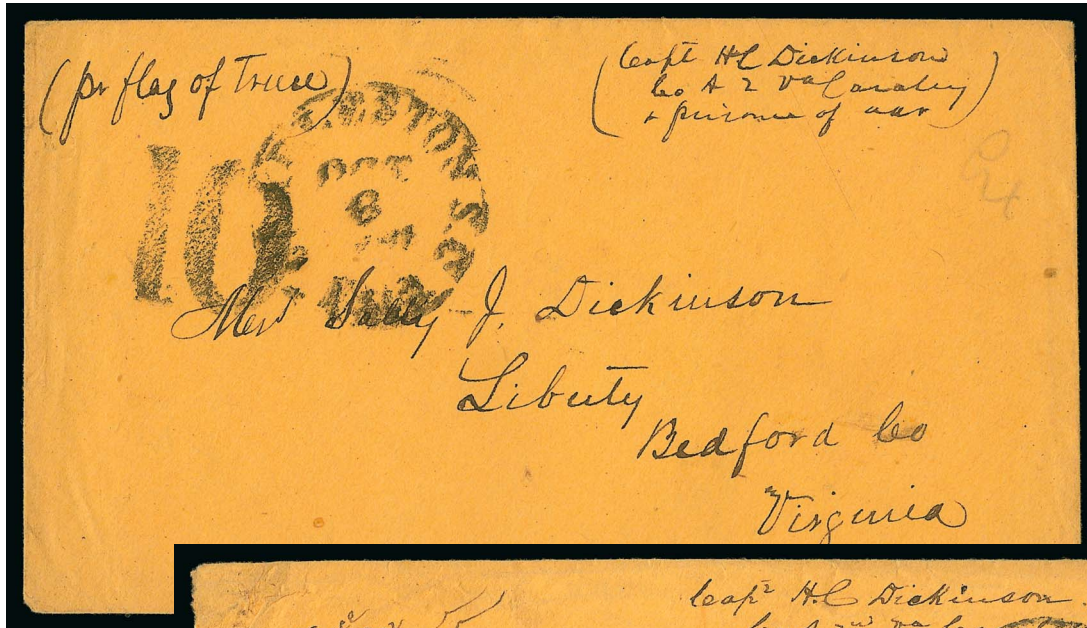 (pr flag of Truce)
(Capt H C Dickinson
Co A 2 Va Cavalry
a prisoner of war)
10
OCT
8
Mrs Sally J. Dickinson
Liberty
Bedford Co
Virginia
Capt H.C Dickinson